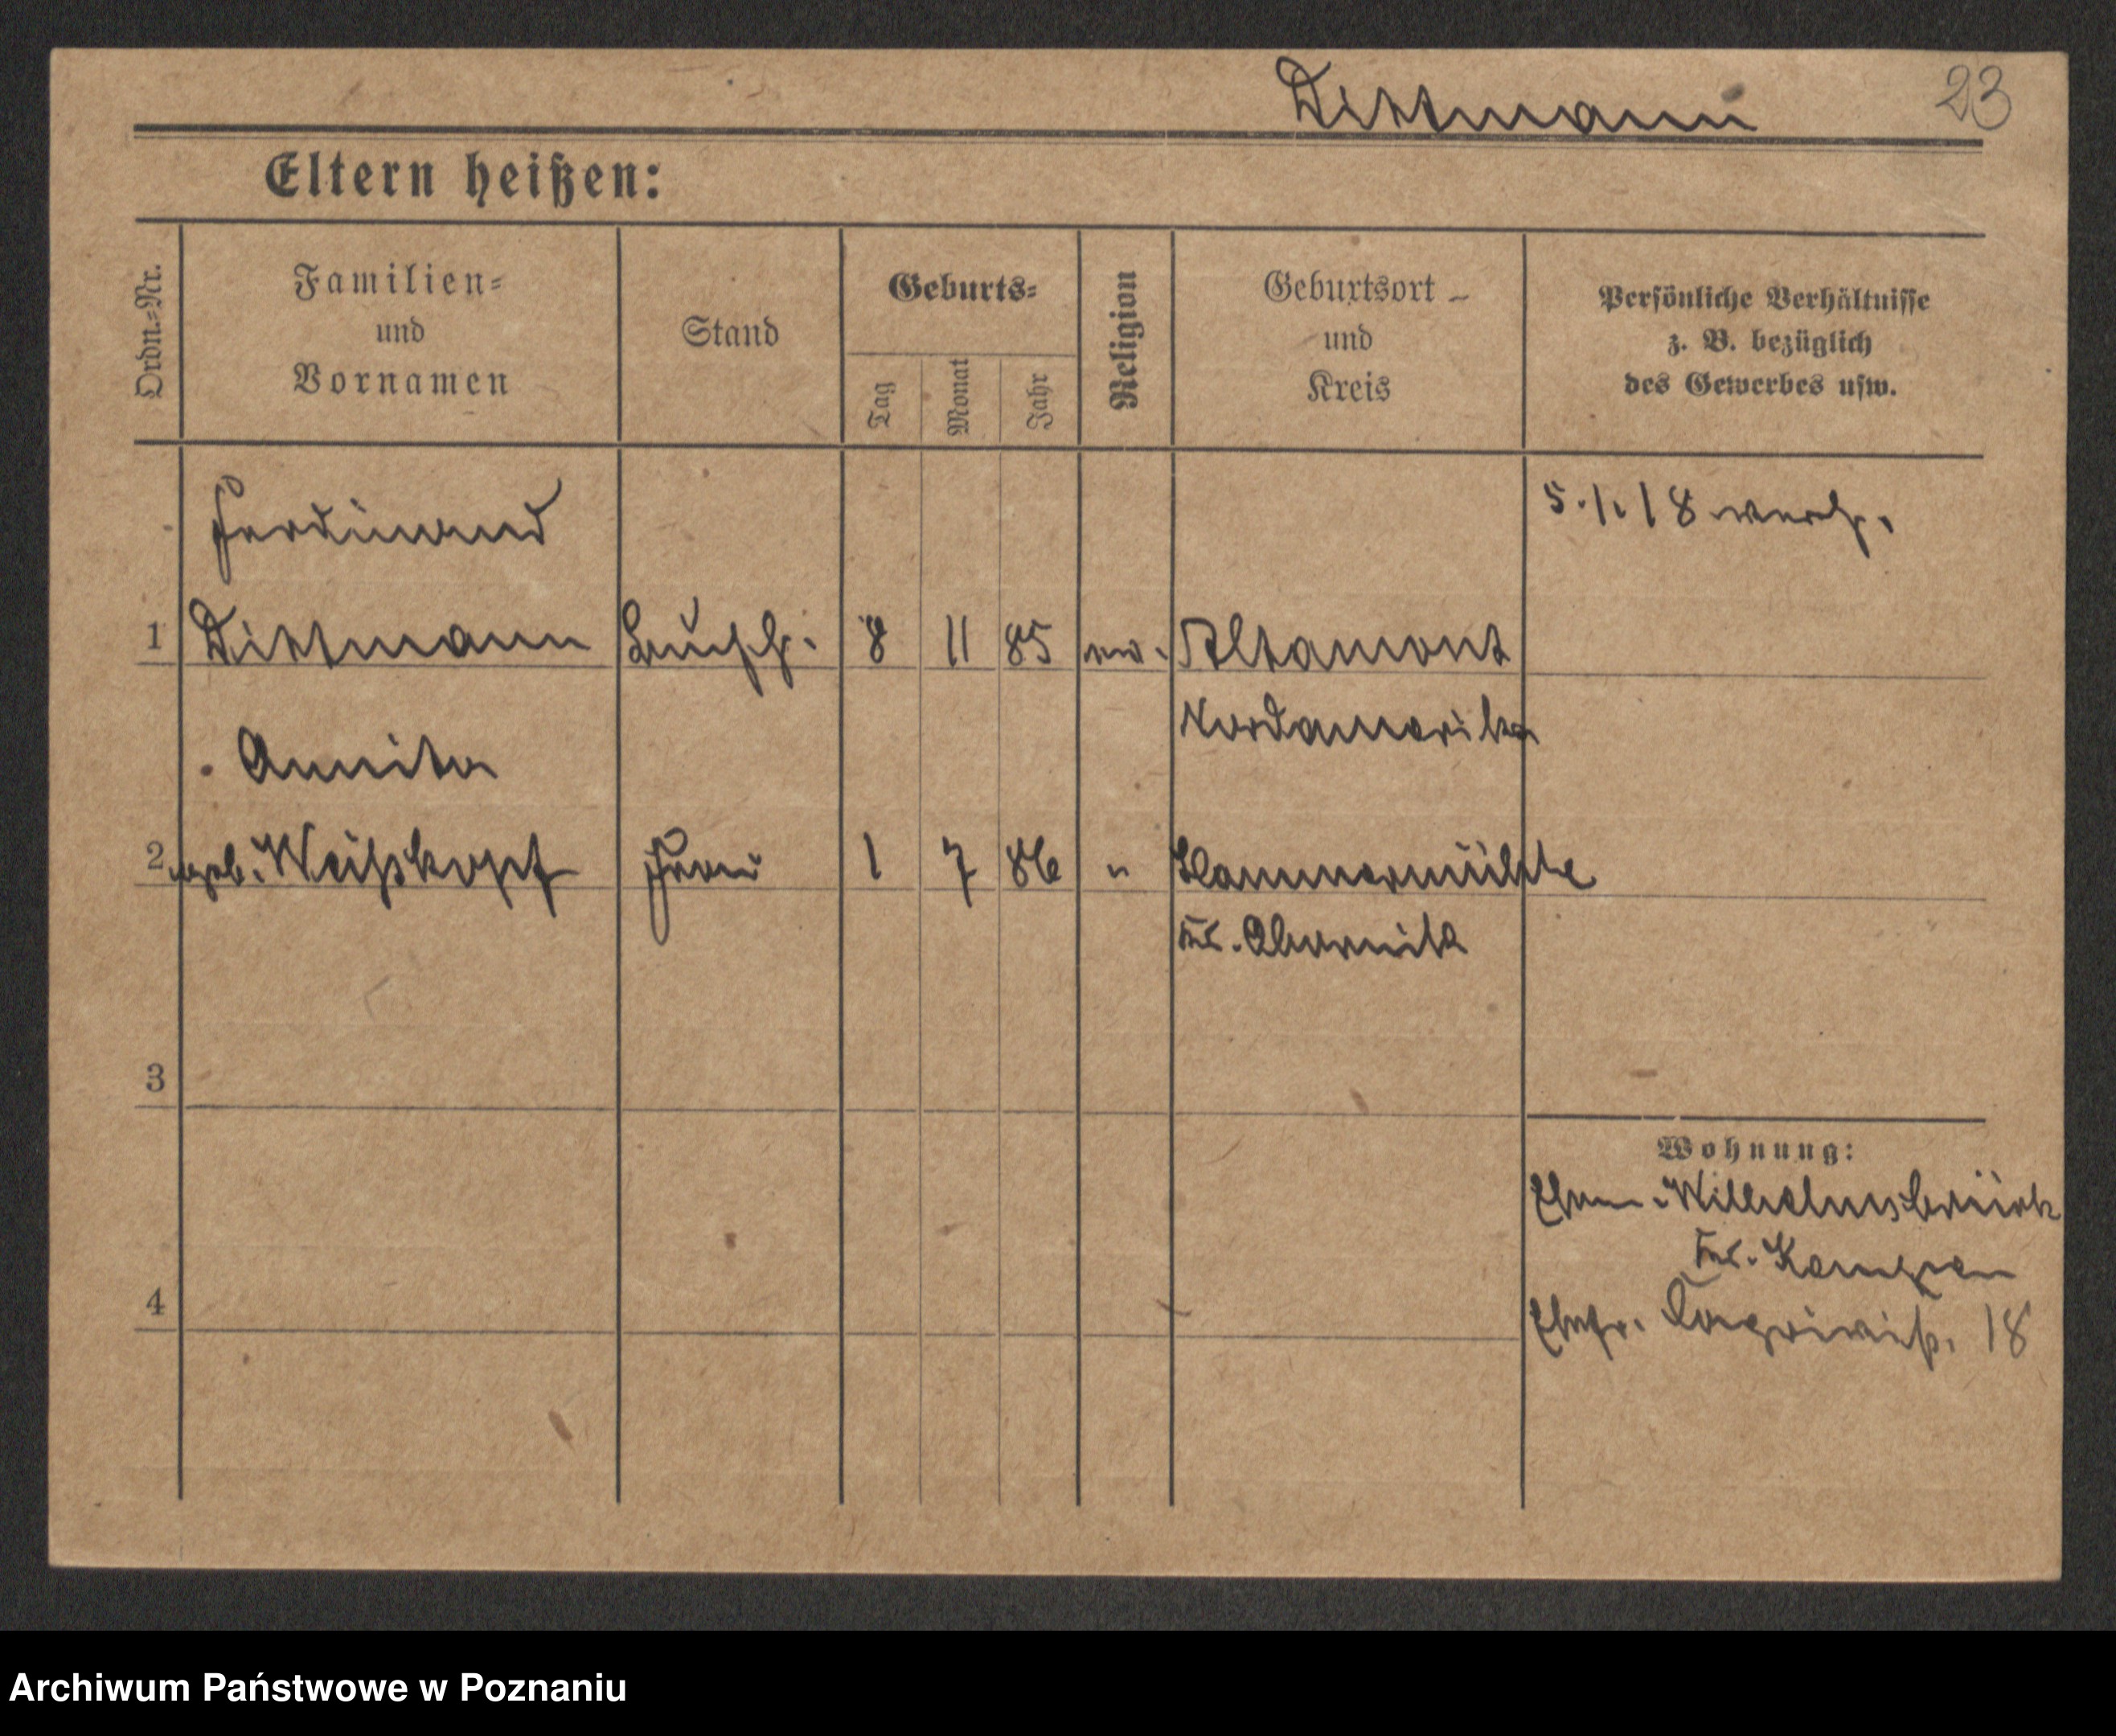 Dittmann 23
Eltern heißen:
Ordn.-Nr.
Familien-
und
Vornamen
Stand
Geburts-
Tag
Monat
Jahr
Religion
Geburtsort
und
Kreis
Persönliche Verhältnisse
z. B. bezüglich
des Gewerbes usw.
Ferdinand
5.1.18 verh.
1 Dittmann 8 11 85 ev. Altamont
Nordamerika
Annita
2 geb. Weißkopf Frau 1 7 86 " Hammermühle
Kr. Obornik
3
Wohnung:
Ehem. Wilhelmsbrück
Kr. Kempen
4
Ehefr. 18
Archiwum Państwowe w Poznaniu